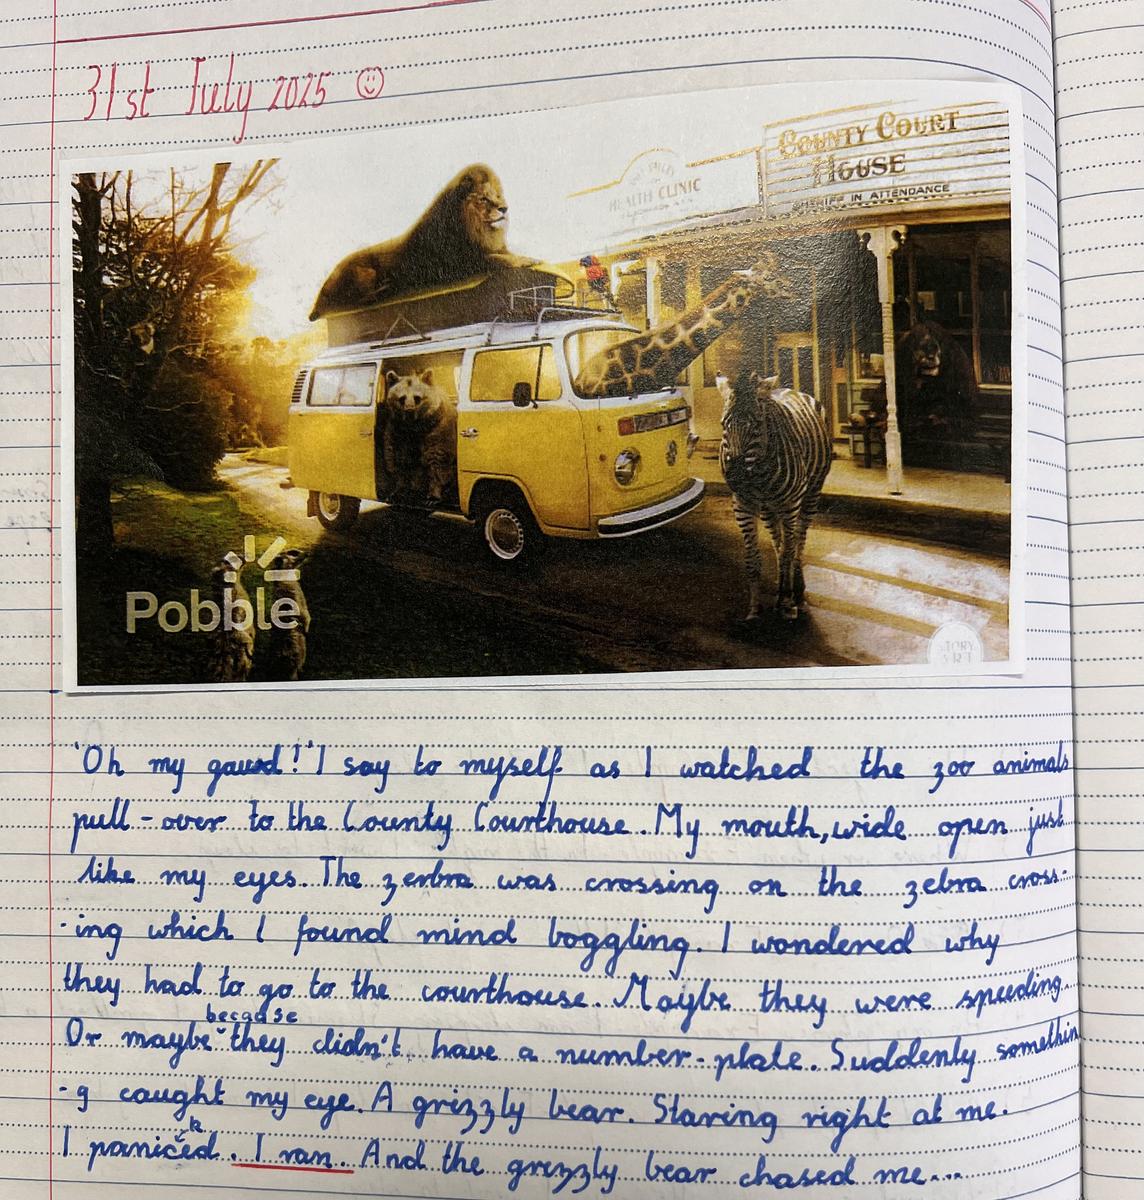 31st July 2025
COUNTY COURT
HOUSE
SHERIFF IN ATTENDANCE
HEALTH CLINIC
Pobble
STORY
ART
'Oh my gaurd!' I say to myself as I watched the zoo animals
pull-over to the County Courthouse. My mouth, wide open just
like my eyes. The zerbra was crossing on the zebra cross-
-ing which I found mind boggling. I wondered why
they had to go to the courthouse. Maybe they were speeding.
because
Or maybe ˇ they didn't have a number-plate. Suddenly somethin
-g caught my eye. A grizzly bear. Staring right at me.
k
I paniced. I ran. And the grizzly bear chased me....